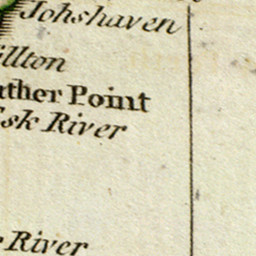 Johshaven
illton
ather Point
Esk River
River